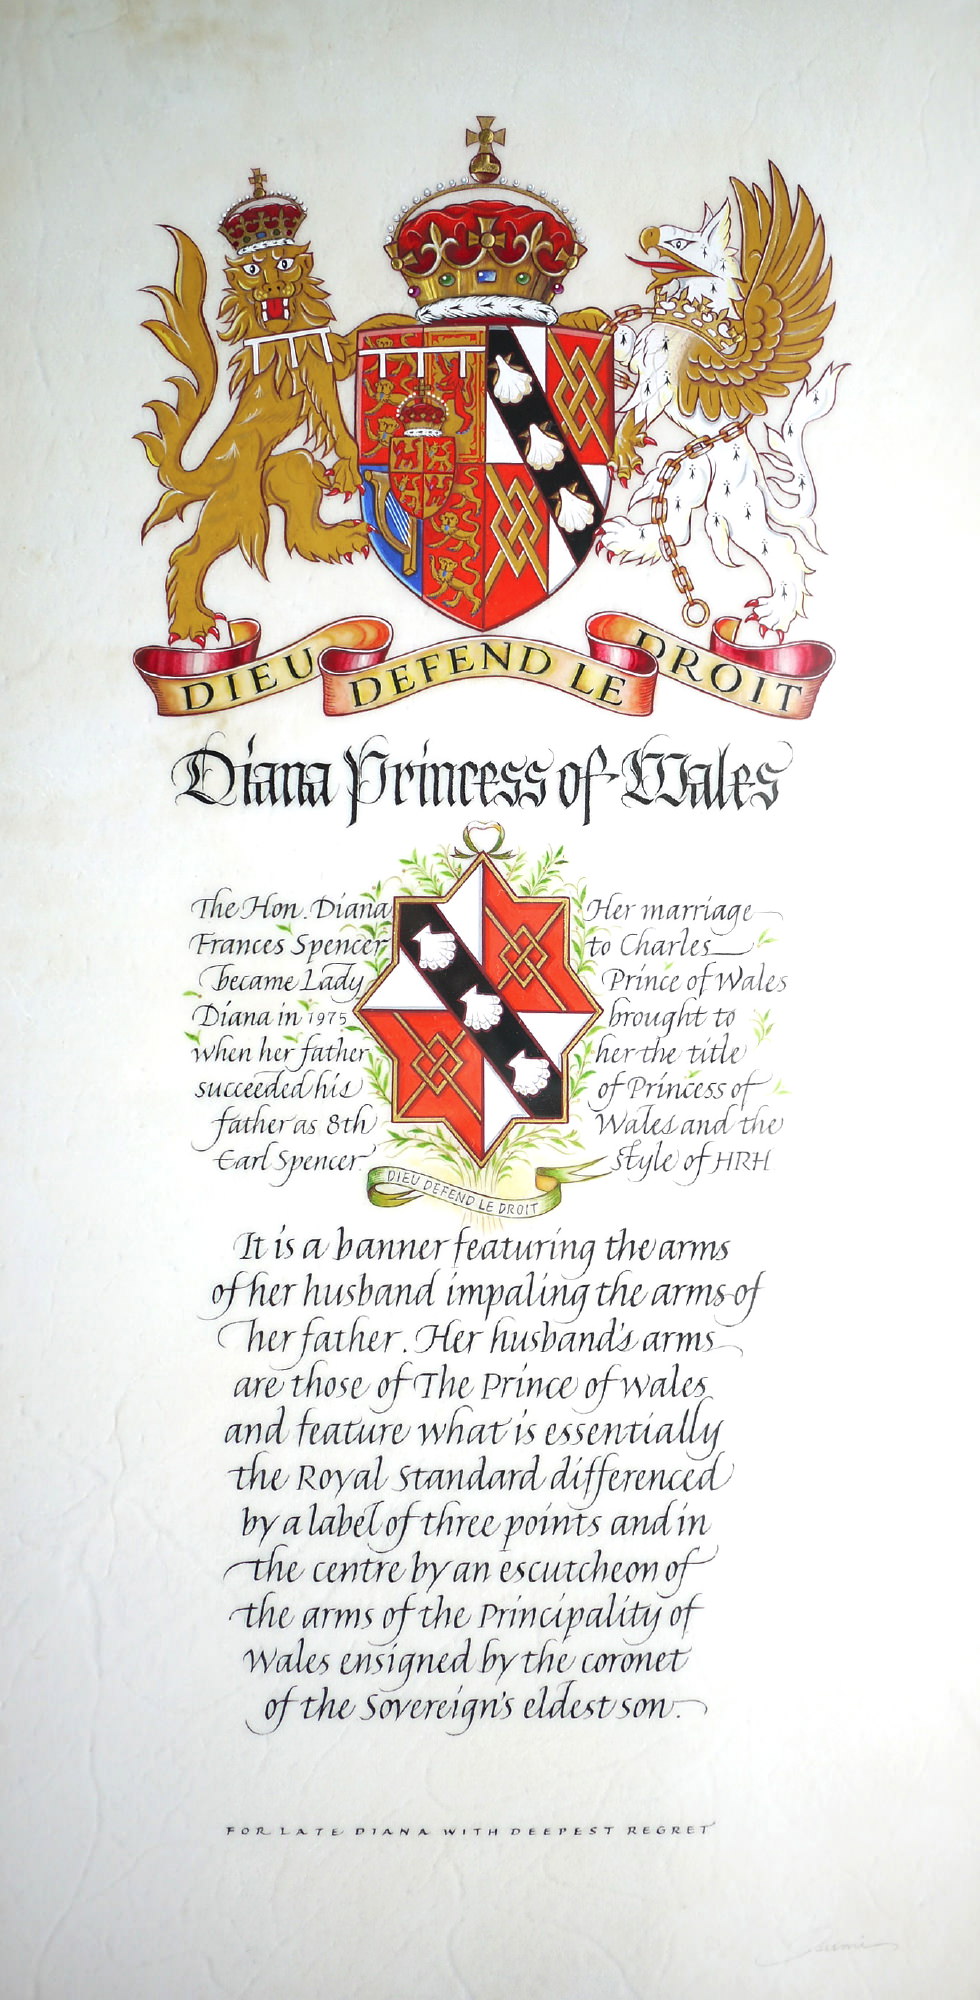 DIEU DEFEND LE DROIT
Diana Princess of Wales
The Hon. Diana
Frances Spencer
became Lady
Diana in 1975
when her father
succeeded his
father as 8th
Earl Spencer.
Her marriage
to Charles
Prince of Wales
brought to
her the title
of Princess of
Wales and the
style of HRH
DIEU DEFEND LE DROIT
It is a banner featuring the arms
of her husband impaling the arms of
her father. Her husband's arms
are those of The Prince of Wales
and feature what is essentially
the Royal Standard differenced
by a label of three points and in
the centre by an escutcheon of
the arms of the Principality of
Wales ensigned by the coronet
of the Sovereign's eldest son.
FOR LATE DIANA WITH DEEPEST REGRET